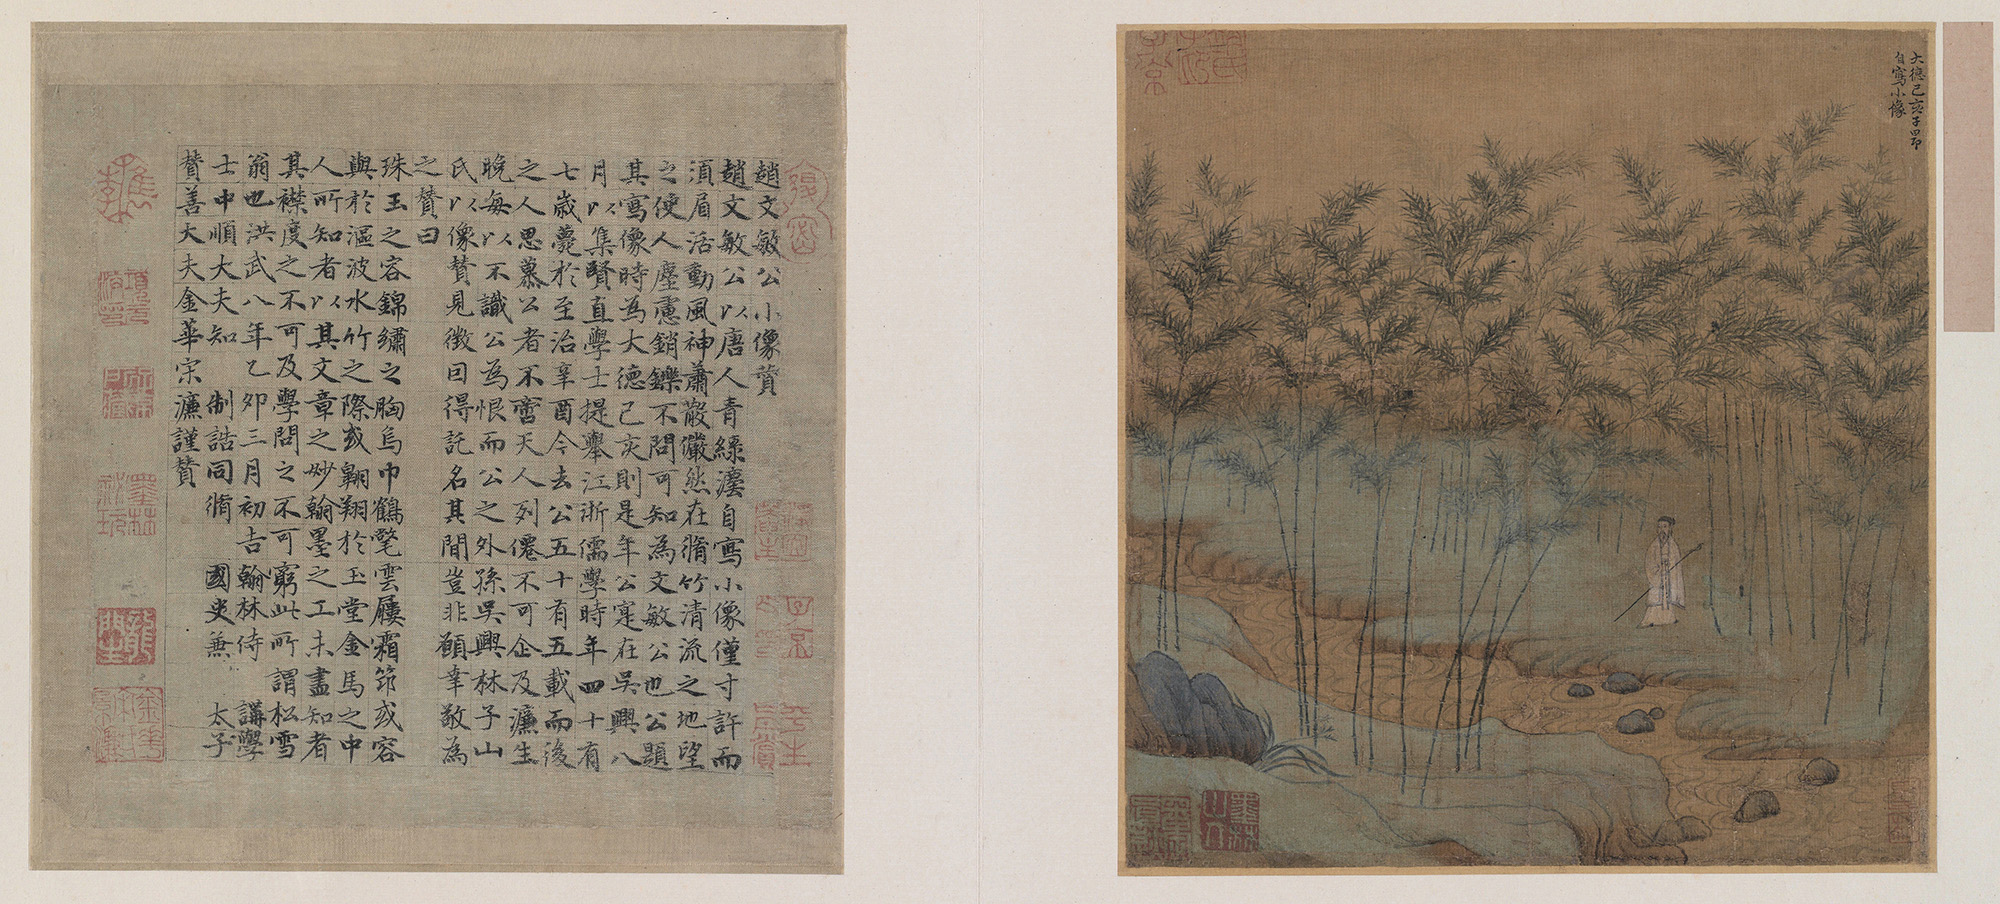 大德己亥子昂
自寫小像
趙文敏公小像贊
趙文敏公以唐人青綠法自寫小像僅寸許而
須眉活動風神蕭散儼然在脩竹清流之地望
之使人塵慮銷鑠不問可知為文敏公也公題
其寫像時為大德己亥則是年公寔在吳興八
月以集賢直學士提舉江浙儒學時年四十有
七歲薨於至治辛酉今去公五十有五載而後
之人思慕公者不啻天人列僊不可企及濂生
晚每以不識公為恨而公之外孫吳興林子山
氏以像贊見徵曰得託名其間豈非願幸敬為
之贊曰
珠玉之容錦繡之胸烏巾鶴氅雲屨霜笻或容
與於漚波水竹之際或翱翔於玉堂金馬之中
人所知者以其文章之妙翰墨之工未盡知者
其襟度之不可及學問之不可窮此所謂松雪
翁也洪武八年乙卯三月初吉翰林侍講學
士中順大夫知制誥同脩國史兼太子
贊善大夫金華宋濂謹贊